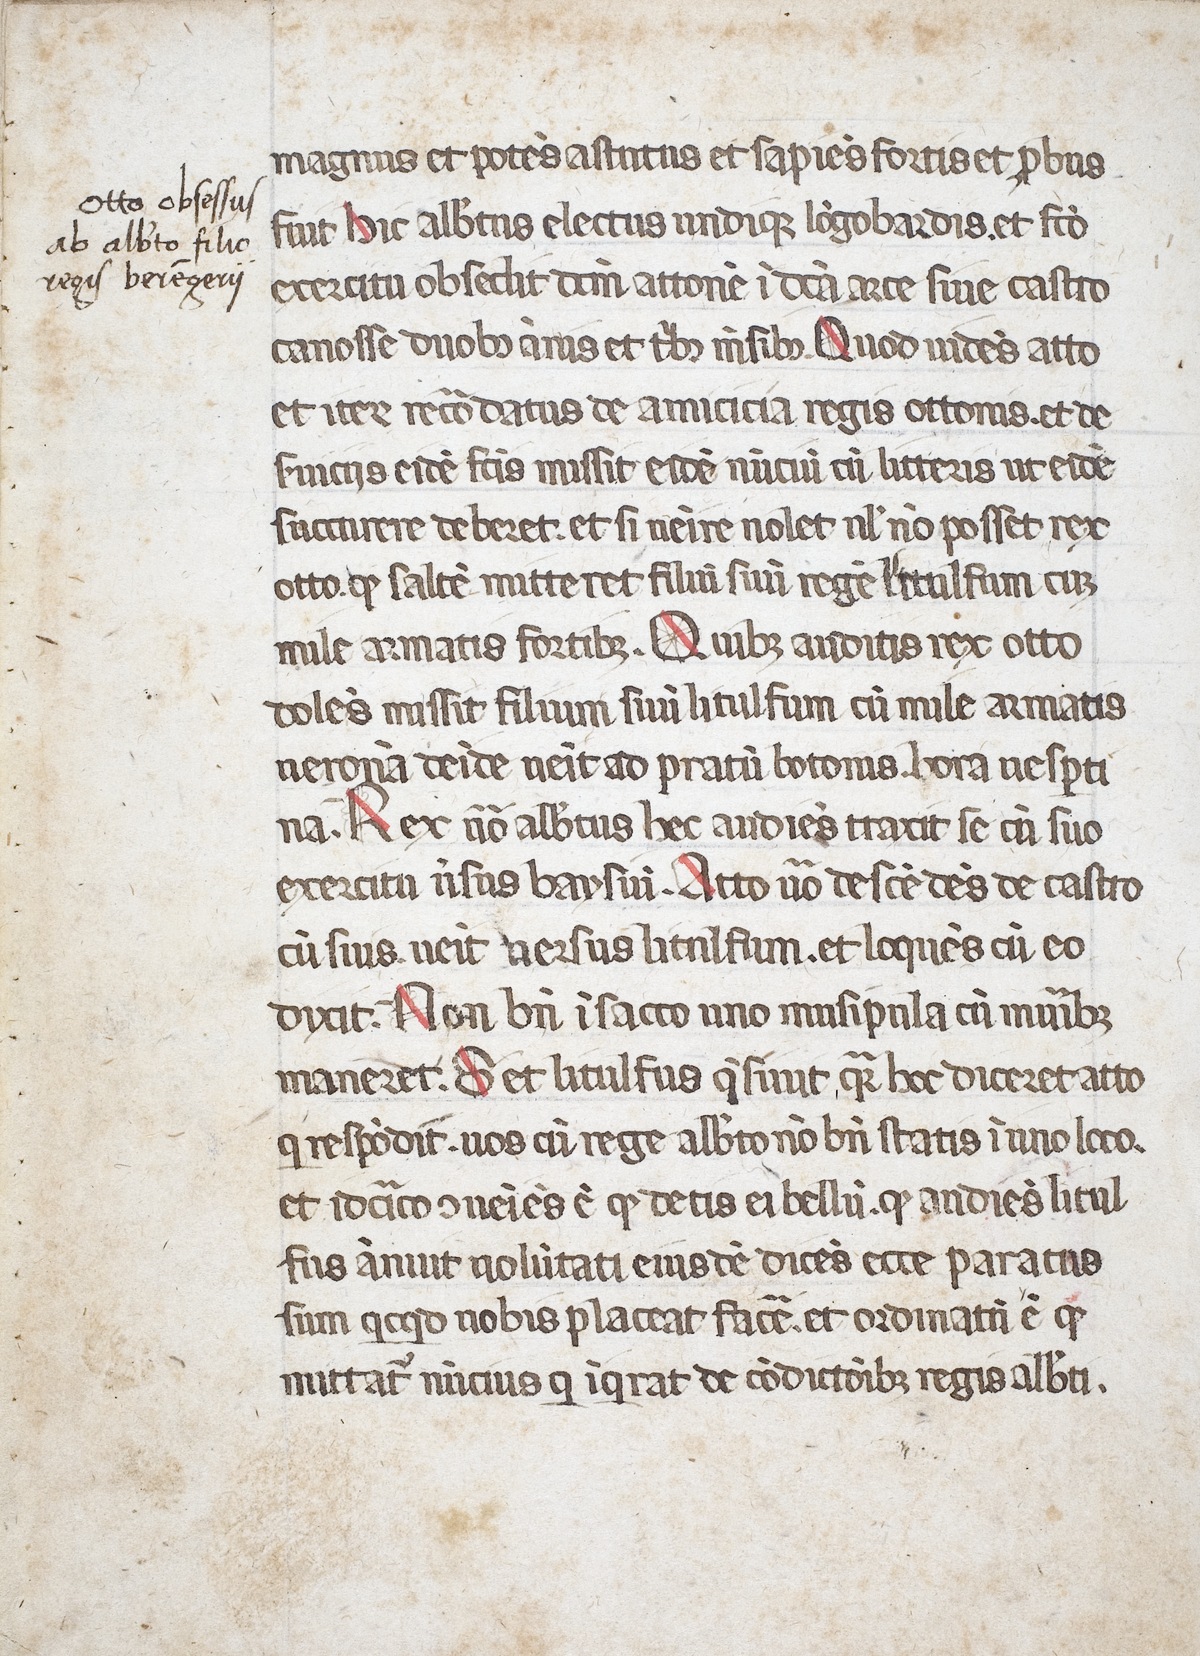 Otto obsessus
ab alb'to filio
regis berēgerii
magnus et potēs astutus et sapiēs fortis et ꝓbus
fuit hic alb'tus electus undiqꝫ lōgobardis. et fc̄o
exercitu obsedit dn̄m attonē ī dc̄a arce siue castro
canosse duobꝫ ānis et t'bꝫ m̄sibꝫ. Quod uidēs atto
et iter recōdatus de amicicia regis ottonis. et de
s'uiciis eidē fc̄is missit eidē nūciū cū litteris ut eidē
succurere deberet. et si ueīre nolet ul' nō posset rex
otto. qꝫ saltē mitteret filiū suū regē litulfum cuꝫ
mile armatis fortibꝫ. Quibꝫ auditis rex otto
dolēs missit filium suū litulfum cū mile armatis
ueronā deīde ueīt ad pratū botonis. hora uesꝑti
na. Rex u̅o̅ alb'tus hec audiēs traxit se cū suo
exercitu ū'sus baysiū. Atto u̅o̅ descēdēs de castro
cū suis. ueīt uersus litulfum. et loquēs cū eo
dixit. Non bn̄ ī sacco uno musipula cū murībꝫ
maneret. Set litulfus q̄siuit, qr̄ hoc diceret atto
q respōdit. uos cū rege alb'to nō bn̄ statis ī uno loco.
et idcīco ꝯueīēs ē qꝫ detis ei bellū. qꝫ audiēs litul
fus ānuit uolūtati eiusdē dicēs ecce paratus
sum qcqd nobis placeat facē. et ordinatū ē qꝫ
mittat' nūcius q īqrat de cōdictōibꝫ regis alb'ti.